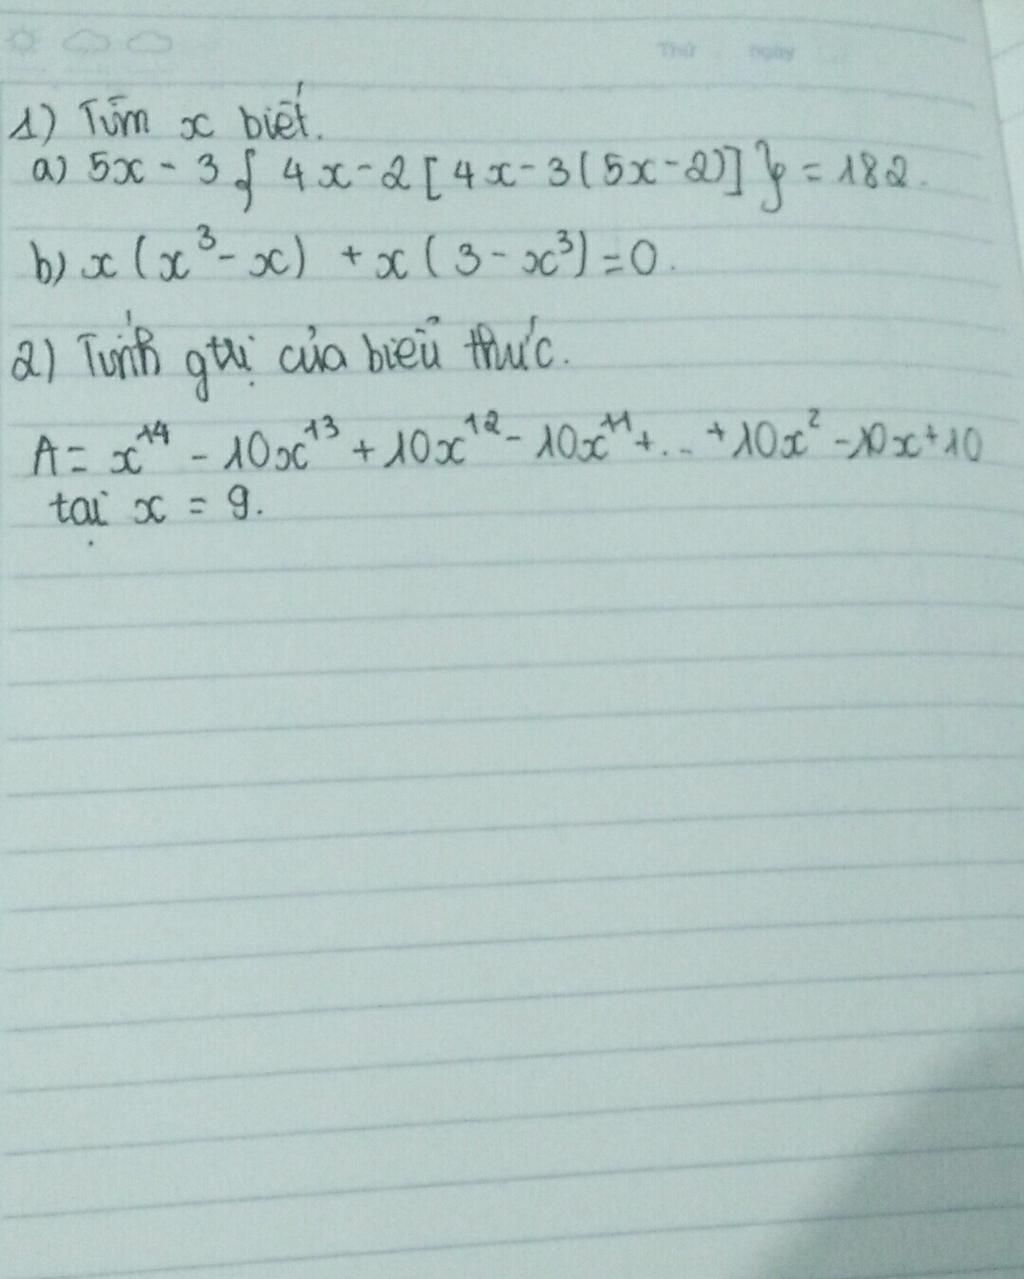 Thứ ngày
1) Tìm x biết.
a) 5x - 3{ 4x - 2[4x - 3(5x - 2)]} = 182.
b) x(x³ - x) + x(3 - x³) = 0.
2) Tính gtrị của biểu thức.
A = x¹⁴ - 10x¹³ + 10x¹² - 10x¹¹ + ... + 10x² - 10x + 10
tại x = 9.